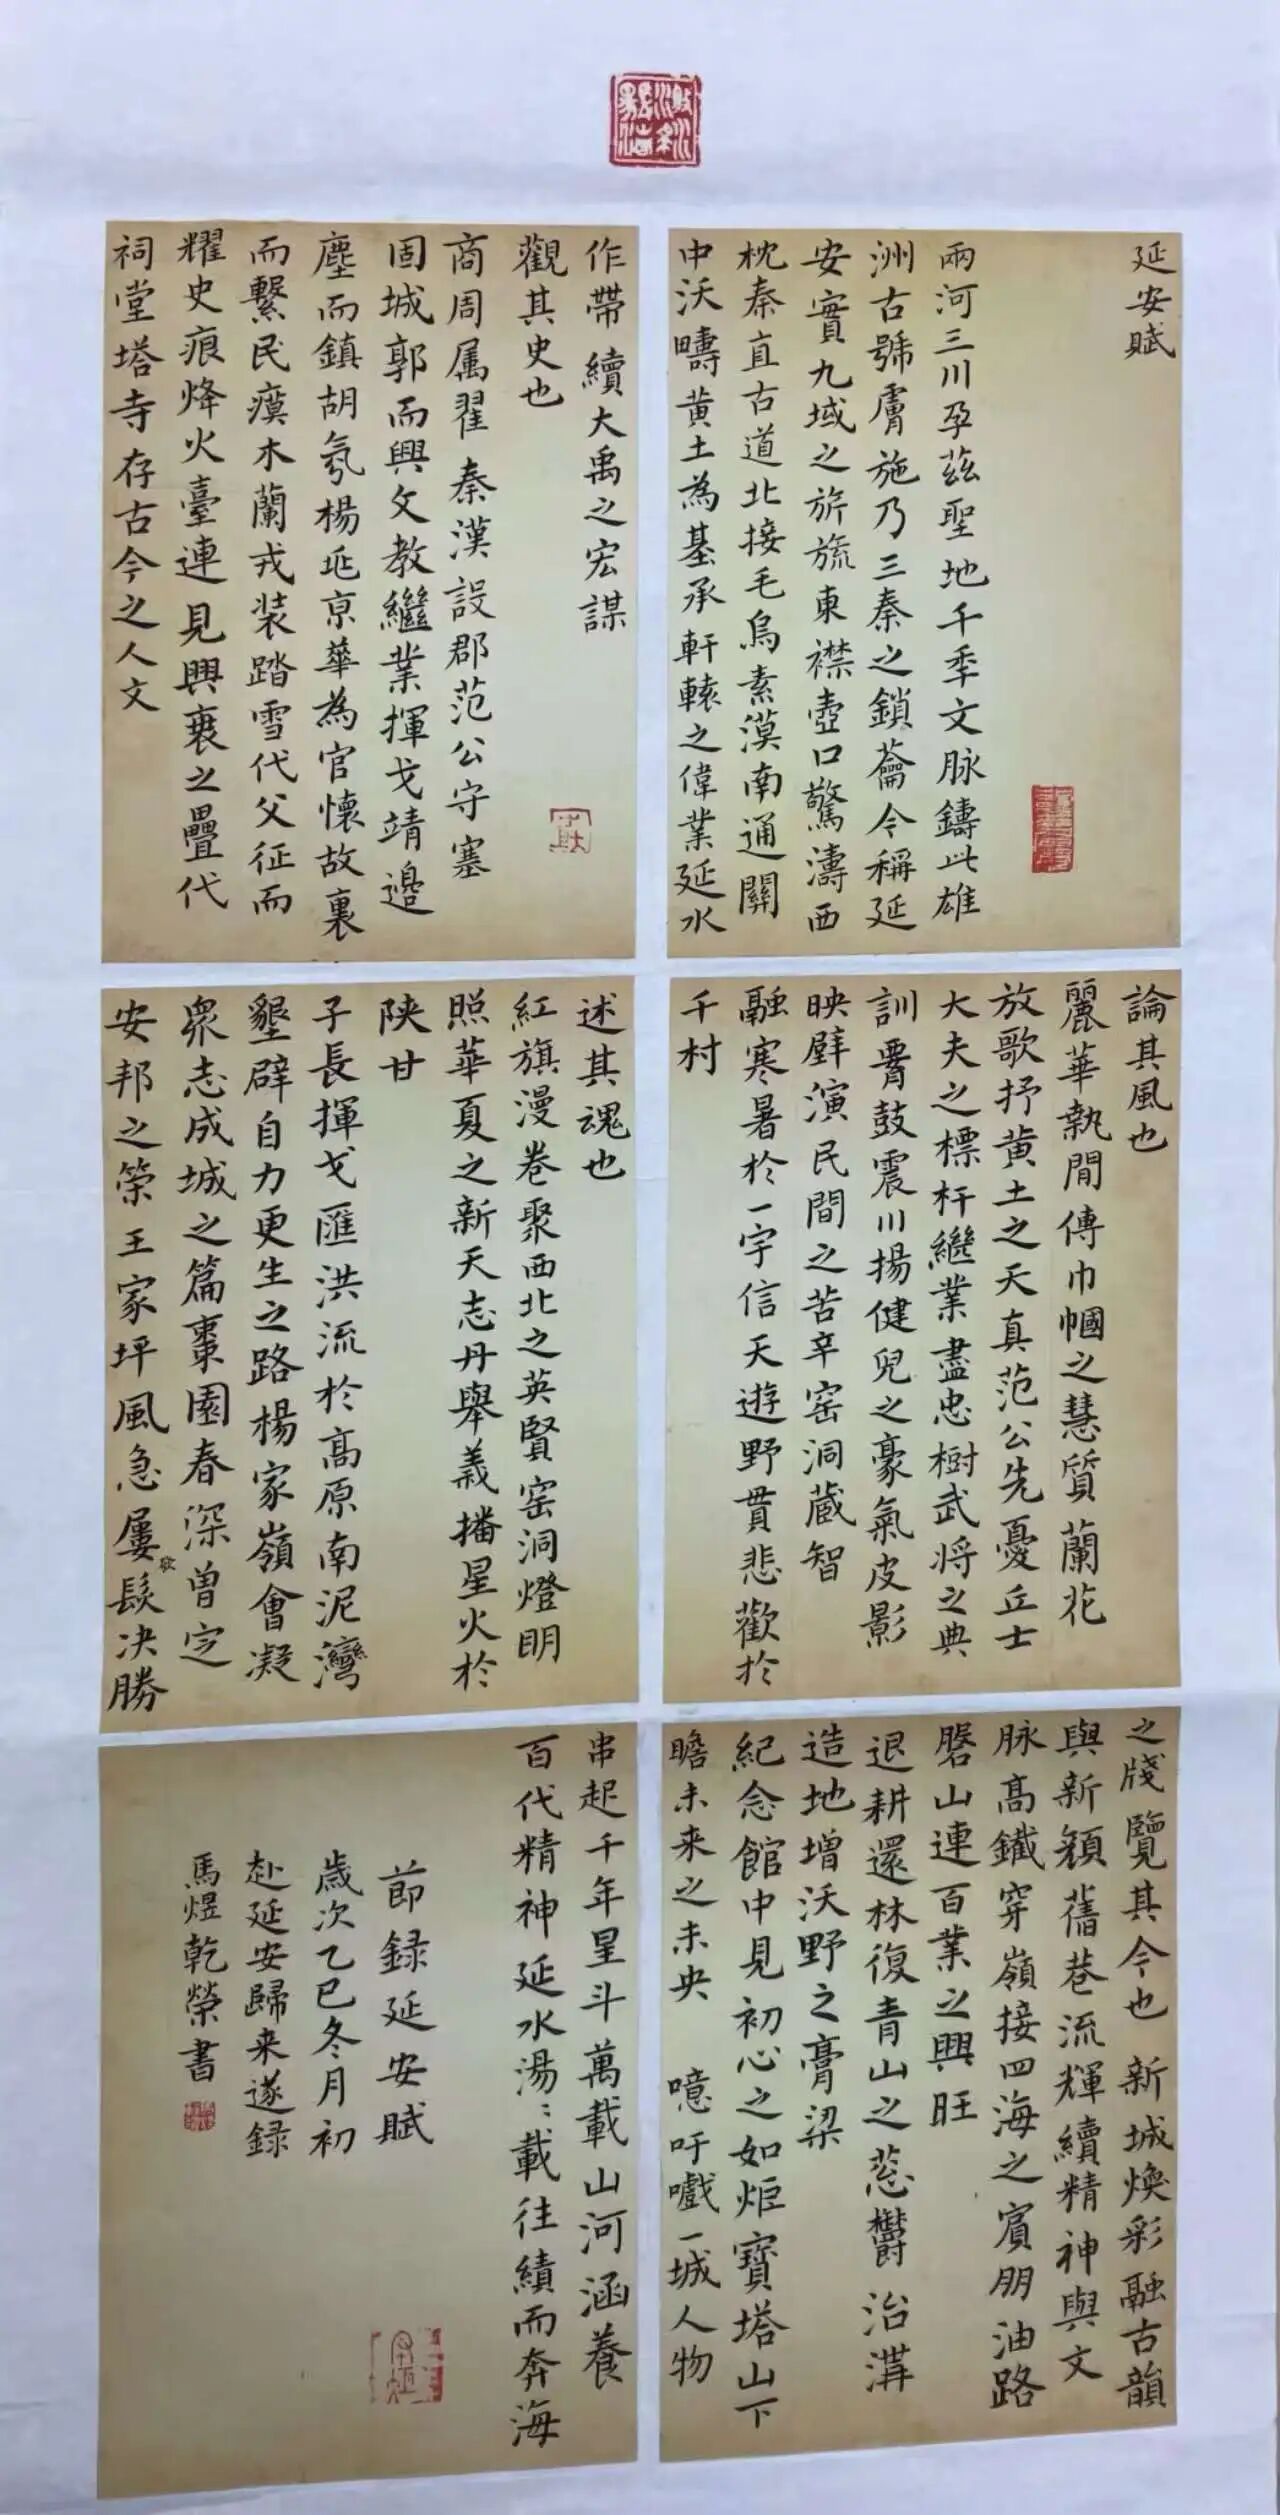 延安賦
兩河三川孕茲聖地千年文脉鑄此雄
洲古號膚施乃三秦之鎖鑰今稱延
安實九域之旂旒東襟壺口驚濤西
枕秦直古道北接毛烏素漠南通關
中沃疇黄土為基承軒轅之偉業延水
作帶續大禹之宏謀
觀其史也
商周属翟秦漢設郡范公守塞
固城郭而興文教繼業揮戈靖邉
塵而鎮胡氛楊兆京華為官懷故裏
而繫民瘼木蘭戎装踏雪代父征而
耀史痕烽火臺連見興衰之疊代
祠堂塔寺存古今之人文
論其風也
麗華執閒傳巾幗之慧質蘭花
放歌抒黄土之天真范公先憂丘士
大夫之標杆繼業盡忠樹武将之典
訓胥鼓震川揚健兒之豪氣皮影
映壁演民間之苦辛窑洞蔵智
融寒暑於一宇信天遊野貫悲歡於
千村
述其魂也
紅旗漫卷聚西北之英賢窑洞燈明
照華夏之新天志丹舉義播星火於
陕甘
子長揮戈匯洪流於高原南泥灣
墾辟自力更生之路楊家嶺會凝
衆志成城之篇棗園春深曾定
安邦之策王家坪風急屢髮决勝
之牋覽其今也 新城煥彩融古韻
與新顔舊巷流輝續精神與文
脉高鐵穿嶺接四海之賓朋油路
磐山連百業之興旺
退耕還林復青山之葱鬱治溝
造地增沃野之膏粱
紀念館中見初心之如炬寶塔山下
瞻未来之未央 噫吁嚱一城人物
串起千年星斗萬載山河涵養
百代精神延水湯〻載往績而奔海
莭録延安賦
歲次乙巳冬月初
赴延安歸来遂録
馬煜乾榮書